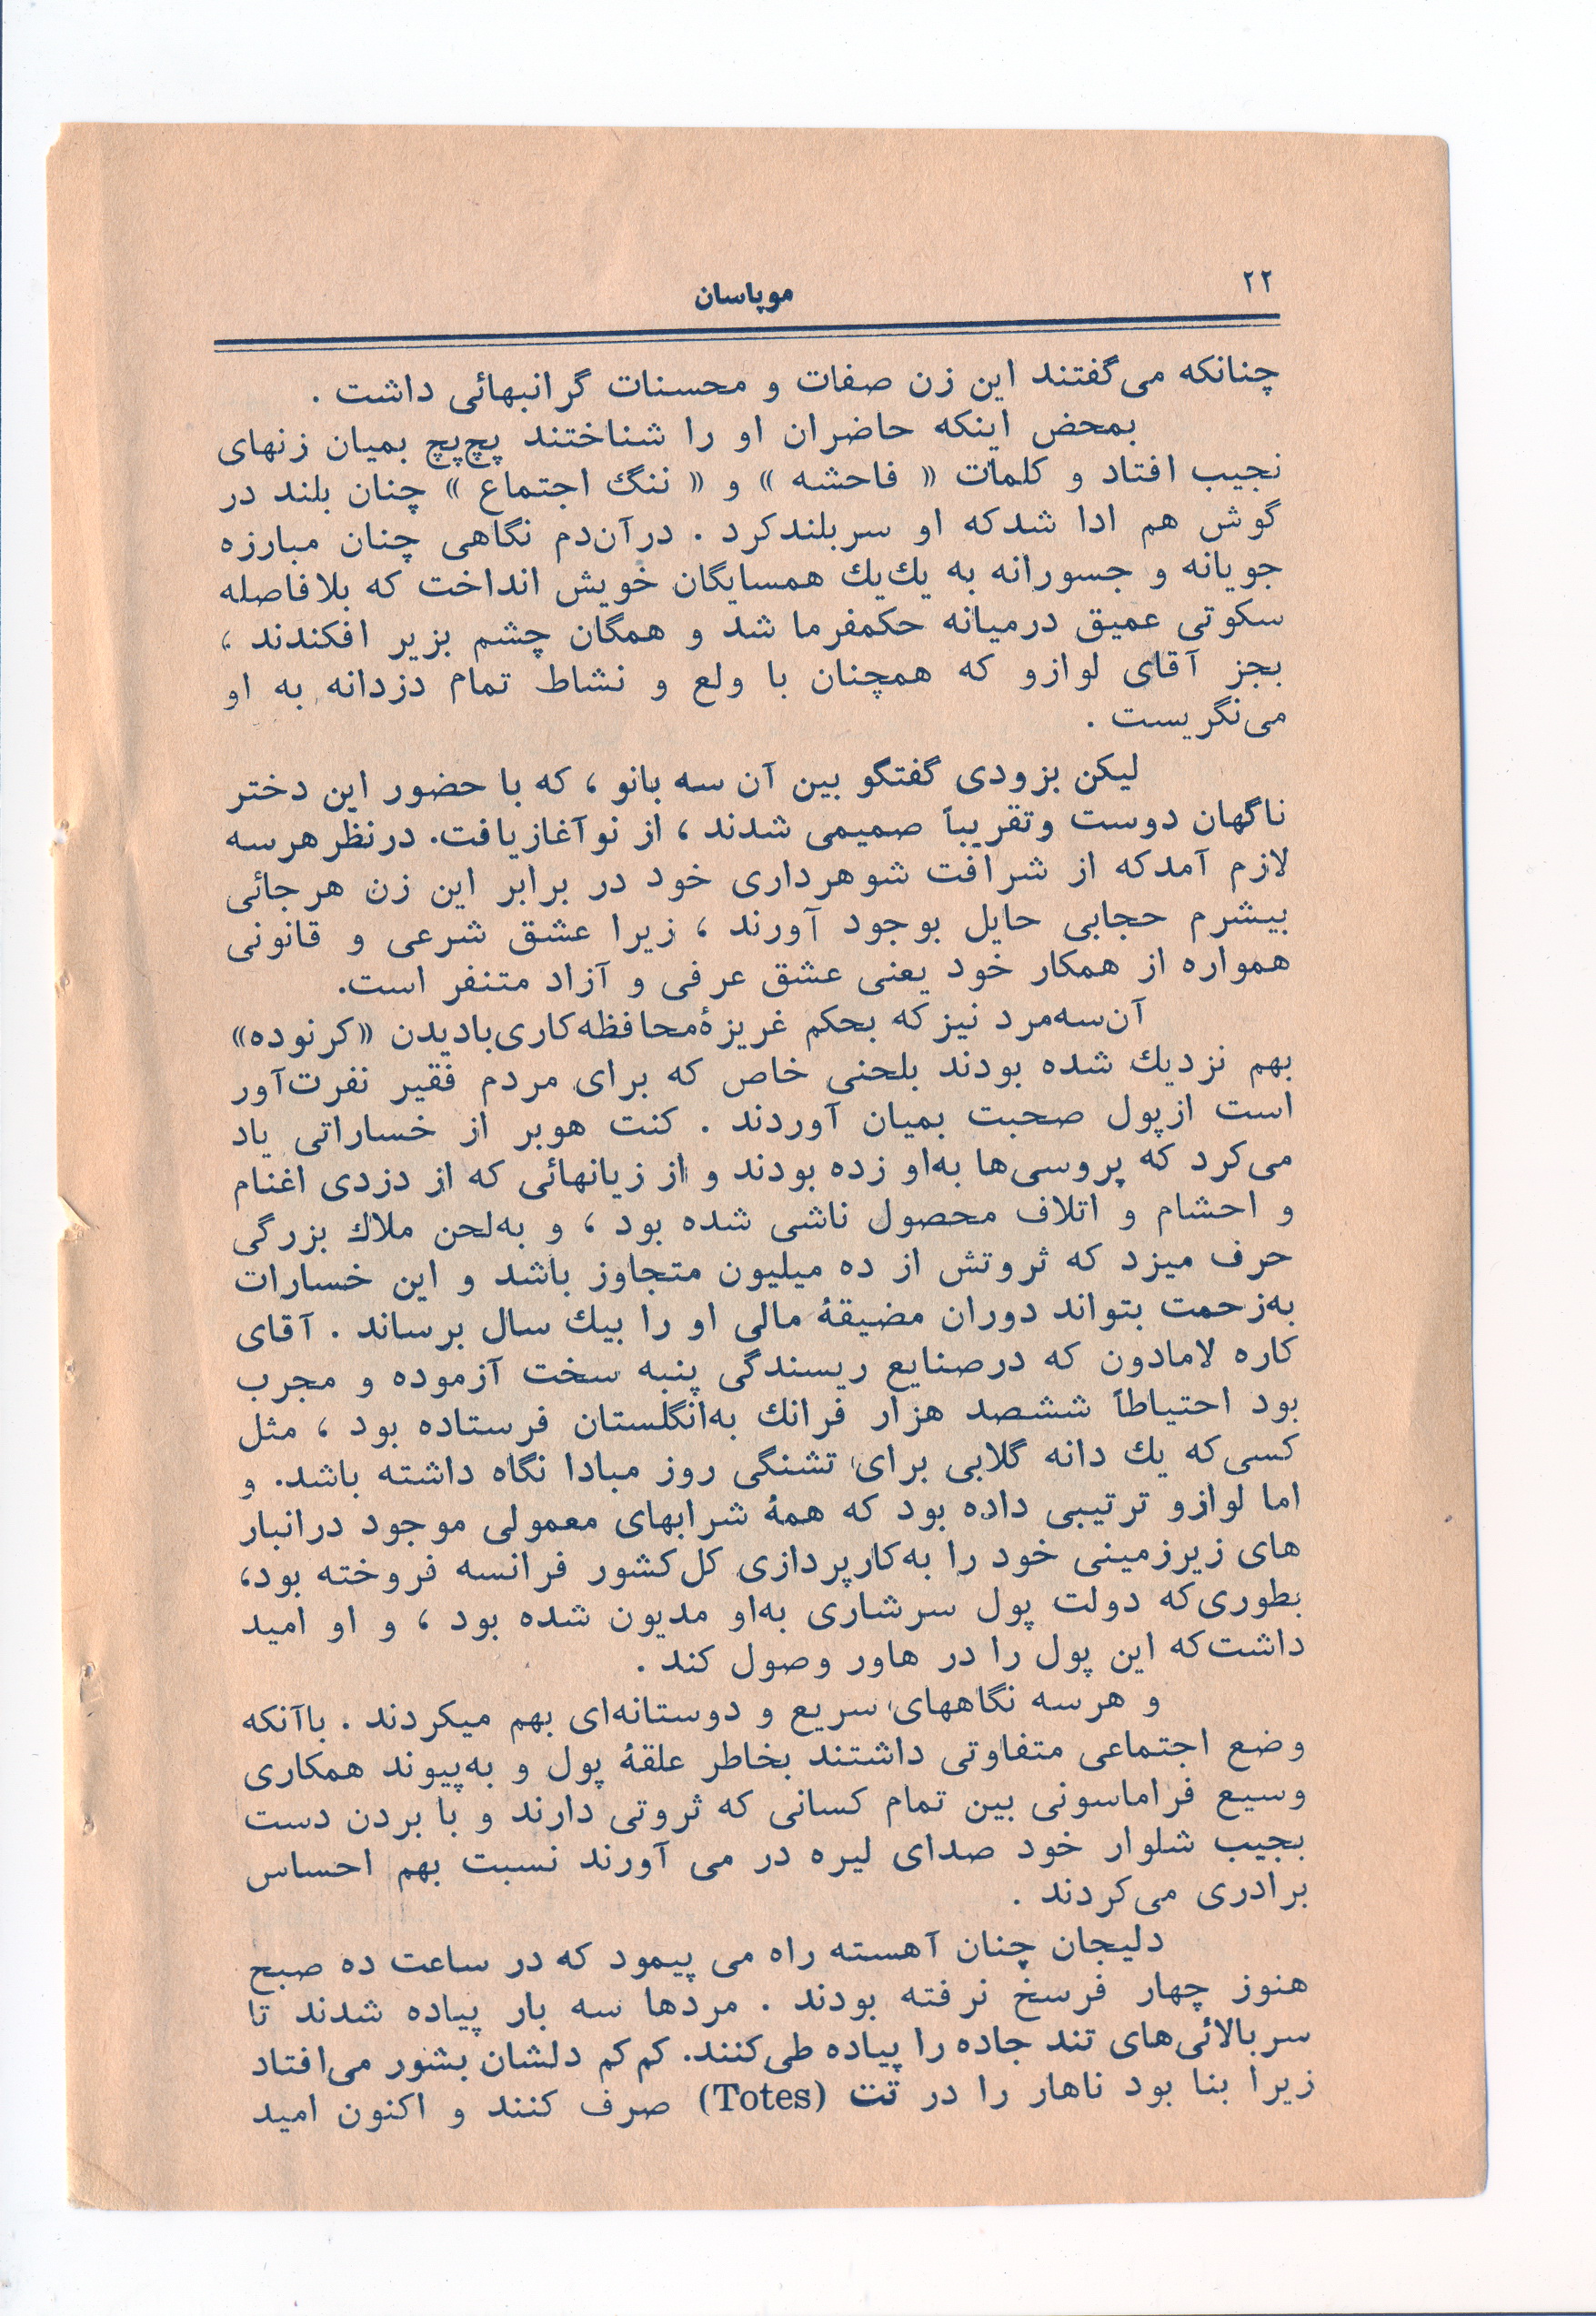 ۲۲
موپاسان
چنانکه می‌گفتند این زن صفات و محسنات گرانبهائی داشت .
بمحض اینکه حاضران او را شناختند پچ‌پچ بمیان زنهای
نجیب افتاد و کلمات « فاحشه » و « ننگ اجتماع » چنان بلند در
گوش هم ادا شدکه او سربلندکرد . درآن‌دم نگاهی چنان مبارزه
جویانه و جسورانه به یك‌یك همسایگان خویش انداخت که بلافاصله
سکوتی عمیق درمیانه حکمفرما شد و همگان چشم بزیر افکندند ،
بجز آقای لوازو که همچنان با ولع و نشاط تمام دزدانه به او
می‌نگریست .
لیکن بزودی گفتگو بین آن سه بانو ، که با حضور این دختر
ناگهان دوست وتقریباً صمیمی شدند ، از نوآغازیافت. درنظر هرسه
لازم آمدکه از شرافت شوهرداری خود در برابر این زن هرجائی
بیشرم حجابی حایل بوجود آورند ، زیرا عشق شرعی و قانونی
همواره از همکار خود یعنی عشق عرفی و آزاد متنفر است.
آن‌سه‌مرد نیزکه بحکم غریزهٔ‌محافظه‌کاری‌بادیدن «کرنوده»
بهم نزدیك شده بودند بلحنی خاص که برای مردم فقیر نفرت‌آور
است ازپول صحبت بمیان آوردند . کنت هوبر از خساراتی یاد
می‌کرد که پروسی‌ها به‌او زده بودند و از زیانهائی که از دزدی اغنام
و احشام و اتلاف محصول ناشی شده بود ، و به‌لحن ملاك بزرگی
حرف میزد که ثروتش از ده میلیون متجاوز باشد و این خسارات
به‌زحمت بتواند دوران مضیقهٔ مالی او را بیك سال برساند . آقای
کاره لامادون که درصنایع ریسندگی پنبه سخت آزموده و مجرب
بود احتیاطاً ششصد هزار فرانك به‌انگلستان فرستاده بود ، مثل
کسی‌که یك دانه گلابی برای تشنگی روز مبادا نگاه داشته باشد. و
اما لوازو ترتیبی داده بود که همهٔ شرابهای معمولی موجود درانبار
های زیرزمینی خود را به‌کارپردازی کل‌کشور فرانسه فروخته بود،
بطوری‌که دولت پول سرشاری به‌او مدیون شده بود ، و او امید
داشت‌که این پول را در هاور وصول کند .
و هرسه نگاههای سریع و دوستانه‌ای بهم میکردند . باآنکه
وضع اجتماعی متفاوتی داشتند بخاطر علقهٔ پول و به‌پیوند همکاری
وسیع فراماسونی بین تمام کسانی که ثروتی دارند و با بردن دست
بجیب شلوار خود صدای لیره در می آورند نسبت بهم احساس
برادری می‌کردند .
دلیجان چنان آهسته راه می پیمود که در ساعت ده صبح
هنوز چهار فرسخ نرفته بودند . مردها سه بار پیاده شدند تا
سربالائی‌های تند جاده را پیاده طی‌کنند. کم‌کم دلشان بشور می‌افتاد
زیرا بنا بود ناهار را در تت (Totes) صرف کنند و اکنون امید